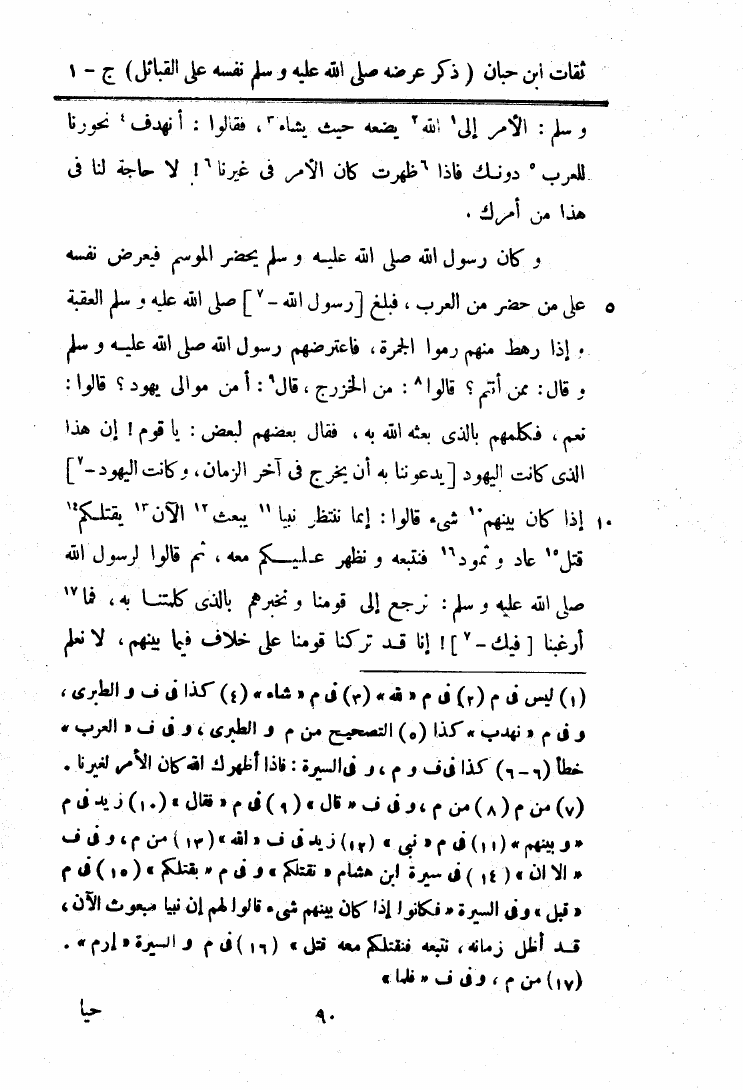 ثقات ابن حبان ( ذكر عرضه صلى الله عليه و سلم نفسه على القبائل) ج - ١
و سلم : الأمر إلى١ الله٢ يضعه حيث يشاء٣، فقالوا : أ نهدف٤ نحورنا
للعرب٥ دونك فاذا٦ ظهرت كان الأمر فى غيرنا٦! لا حاجة لنا فى
هذا من أمرك .
و كان رسول الله صلى الله عليه و سلم يحضر الموسم فيعرض نفسه
٥ على من حضر من العرب ، فبلغ [رسول الله -٧] صلى الله عليه و سلم العقبة
و إذا رهط منهم رموا الجمرة، فاعترضهم رسول الله صلى الله عليه و سلم
و قال: ممن أنتم ؟ قالوا٨ : من الخزرج ، قال٩: أ من موالى يهود ؟ قالوا :
نعم ، فكلمهم بالذى بعثه الله به ، فقال بعضهم لبعض : يا قوم ! إن هذا
الذى كانت اليهود [يدعوننا به أن يخرج فى آخر الزمان، وكانت اليهود -٧]
١٠ إذا كان بينهم١٠ شىء قالوا : إنما ننتظر نبيا١١ يبعث١٢ الآن١٣ يقتلكم١٤
قتل١٥ عاد و ثمود١٦ فنتبعه و نظهر عليكم معه ، ثم قالوا لرسول الله
صلى الله عليه و سلم : نرجع إلى قومنا و نخبرهم بالذى كلمتنا به، فما١٧
أرغبنا [فيك -٧]! إنا قد تركنا قومنا على خلاف فيما بينهم، لا نعلم
(١) ليس فى م (٢) فى م « لله » (٣) فى م « شاء » (٤) كذا فى ف و الطبرى ،
و فى م « نهدب » كذا (٥) التصحيح من م و الطبرى ، و فى ف « العرب »
خطأ (٦-٦) كذا فى ف و م ، و فى السيرة : فاذا أظهرك الله كان الأمر لغيرنا .
(٧) من م (٨) من م ، و فى ف « قال » (٩) فى م « فقال » (١٠) زيد فى م
« و بينهم » (١١) فى م « نبى » (١٢) زيد فى ف « الله » (١٣) من م ، و فى ف
« الا ان » (١٤) فى سيرة ابن هشام « نقتلكم » و فى م « بقتلكم » (١٥) فى م
« قبل » وفى السيرة « فكانوا إذا كان بينهم شىء قالوا لهم إن نبيا مبعوث الآن ،
قد أظل زمانه ، نتبعه فنقتلكم معه قتل » (١٦) فى م و السيرة « إرم » .
(١٧) من م ، و فى ف « فلما »
٩٠ حيا